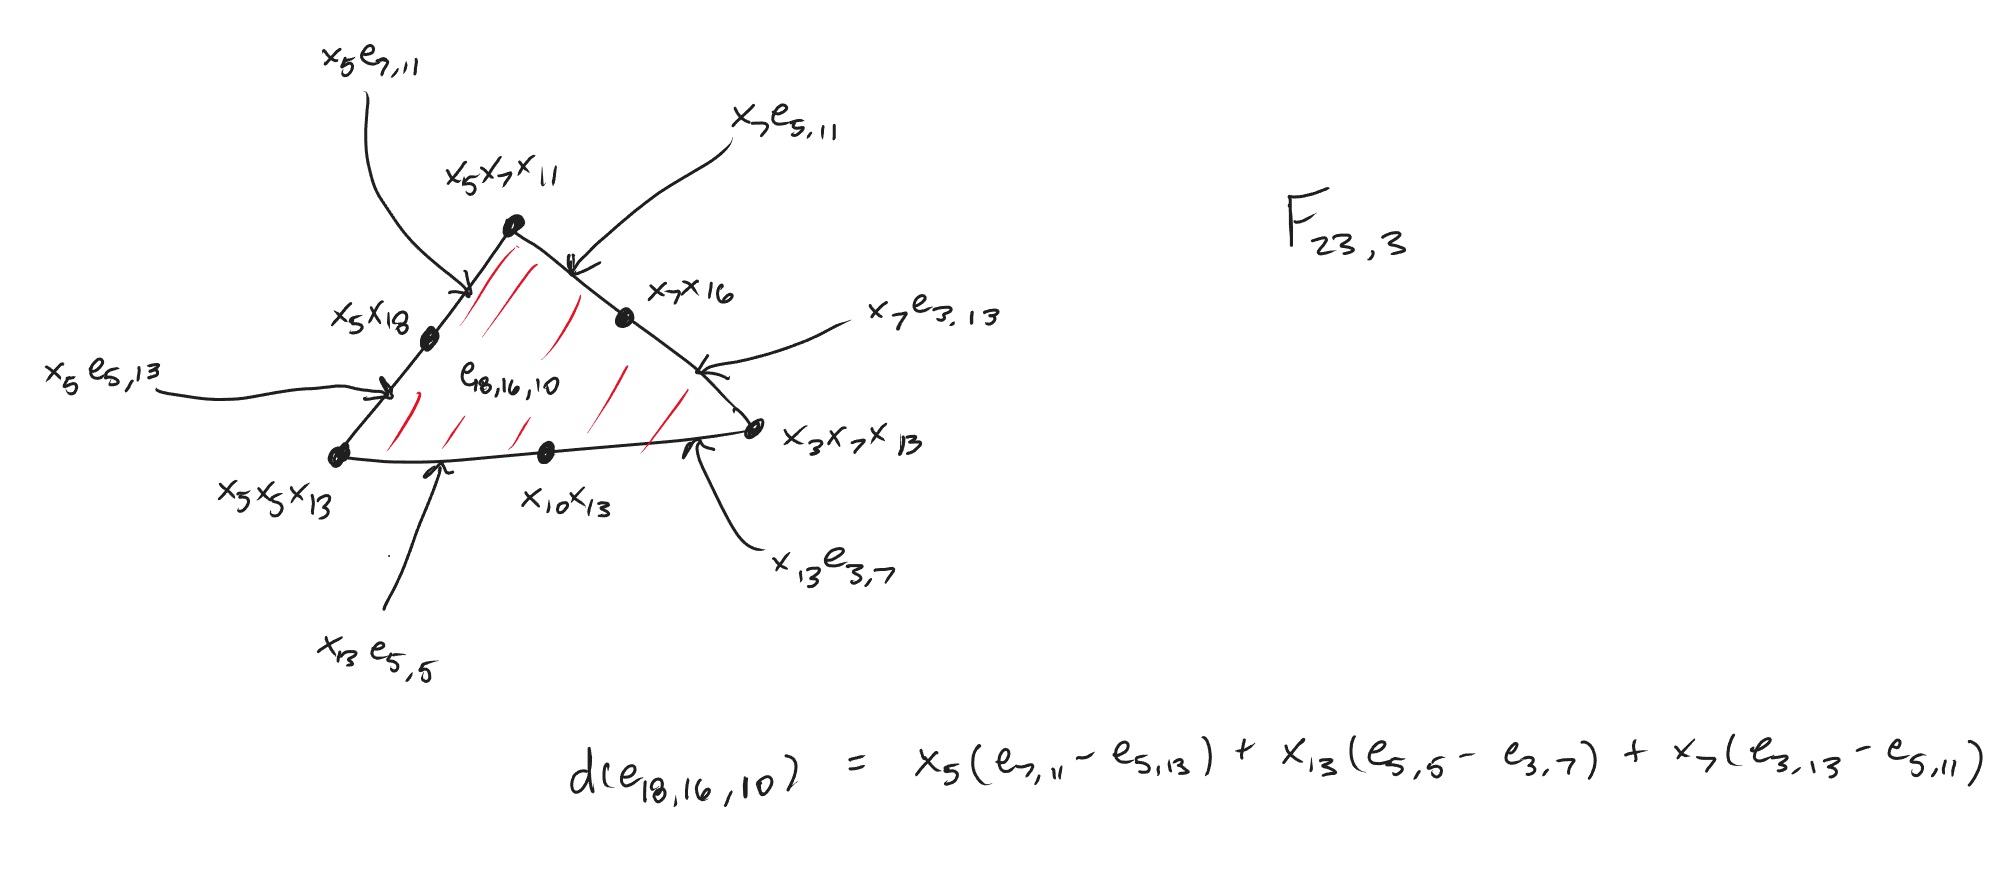 x₅e₇,₁₁
x₇e₅,₁₁
x₅x₇x₁₁
F₂₃,₃
x₇x₁₆
x₅x₁₈
x₇e₃,₁₃
x₅e₅,₁₃
e₁₈,₁₆,₁₀
x₃x₇x₁₃
x₅x₅x₁₃
x₁₀x₁₃
x₁₃e₃,₇
x₁₃e₅,₅
d(e₁₈,₁₆,₁₀) = x₅(e₇,₁₁ - e₅,₁₃) + x₁₃(e₅,₅ - e₃,₇) + x₇(e₃,₁₃ - e₅,₁₁)